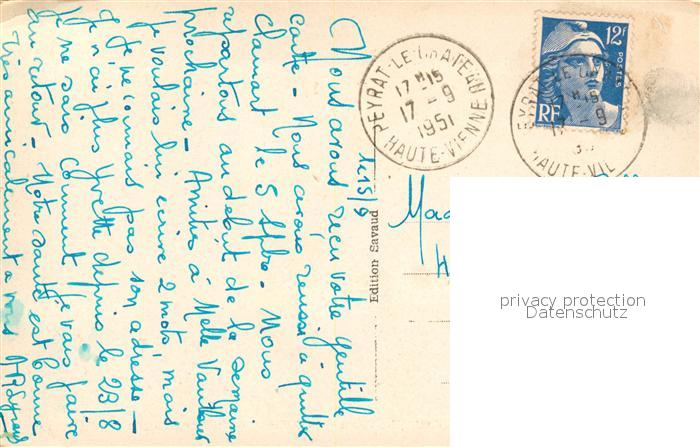 le 15/9
Nous avons reçu votre gentille
carte - Nous avons reussi à quitter
Clamart le 5 Spbre - Nous
repartons au debut de la semaine
prochaine - Amitiés à Melle
je voulais lui écrire 2 mots mais
je ne connais pas son adresse -
Je n'ai plus Yvette depuis le 23/8
je ne sais comment je vais faire
au retour - Notre santé est bonne
très amicalement à vous
Edition Savaud
PEYRAT-LE-CHATEAU
17H15
17-9
1951
HAUTE-VIENNE
12F
POSTES
RF
HAUTE-VIE
privacy protection
Datenschutz